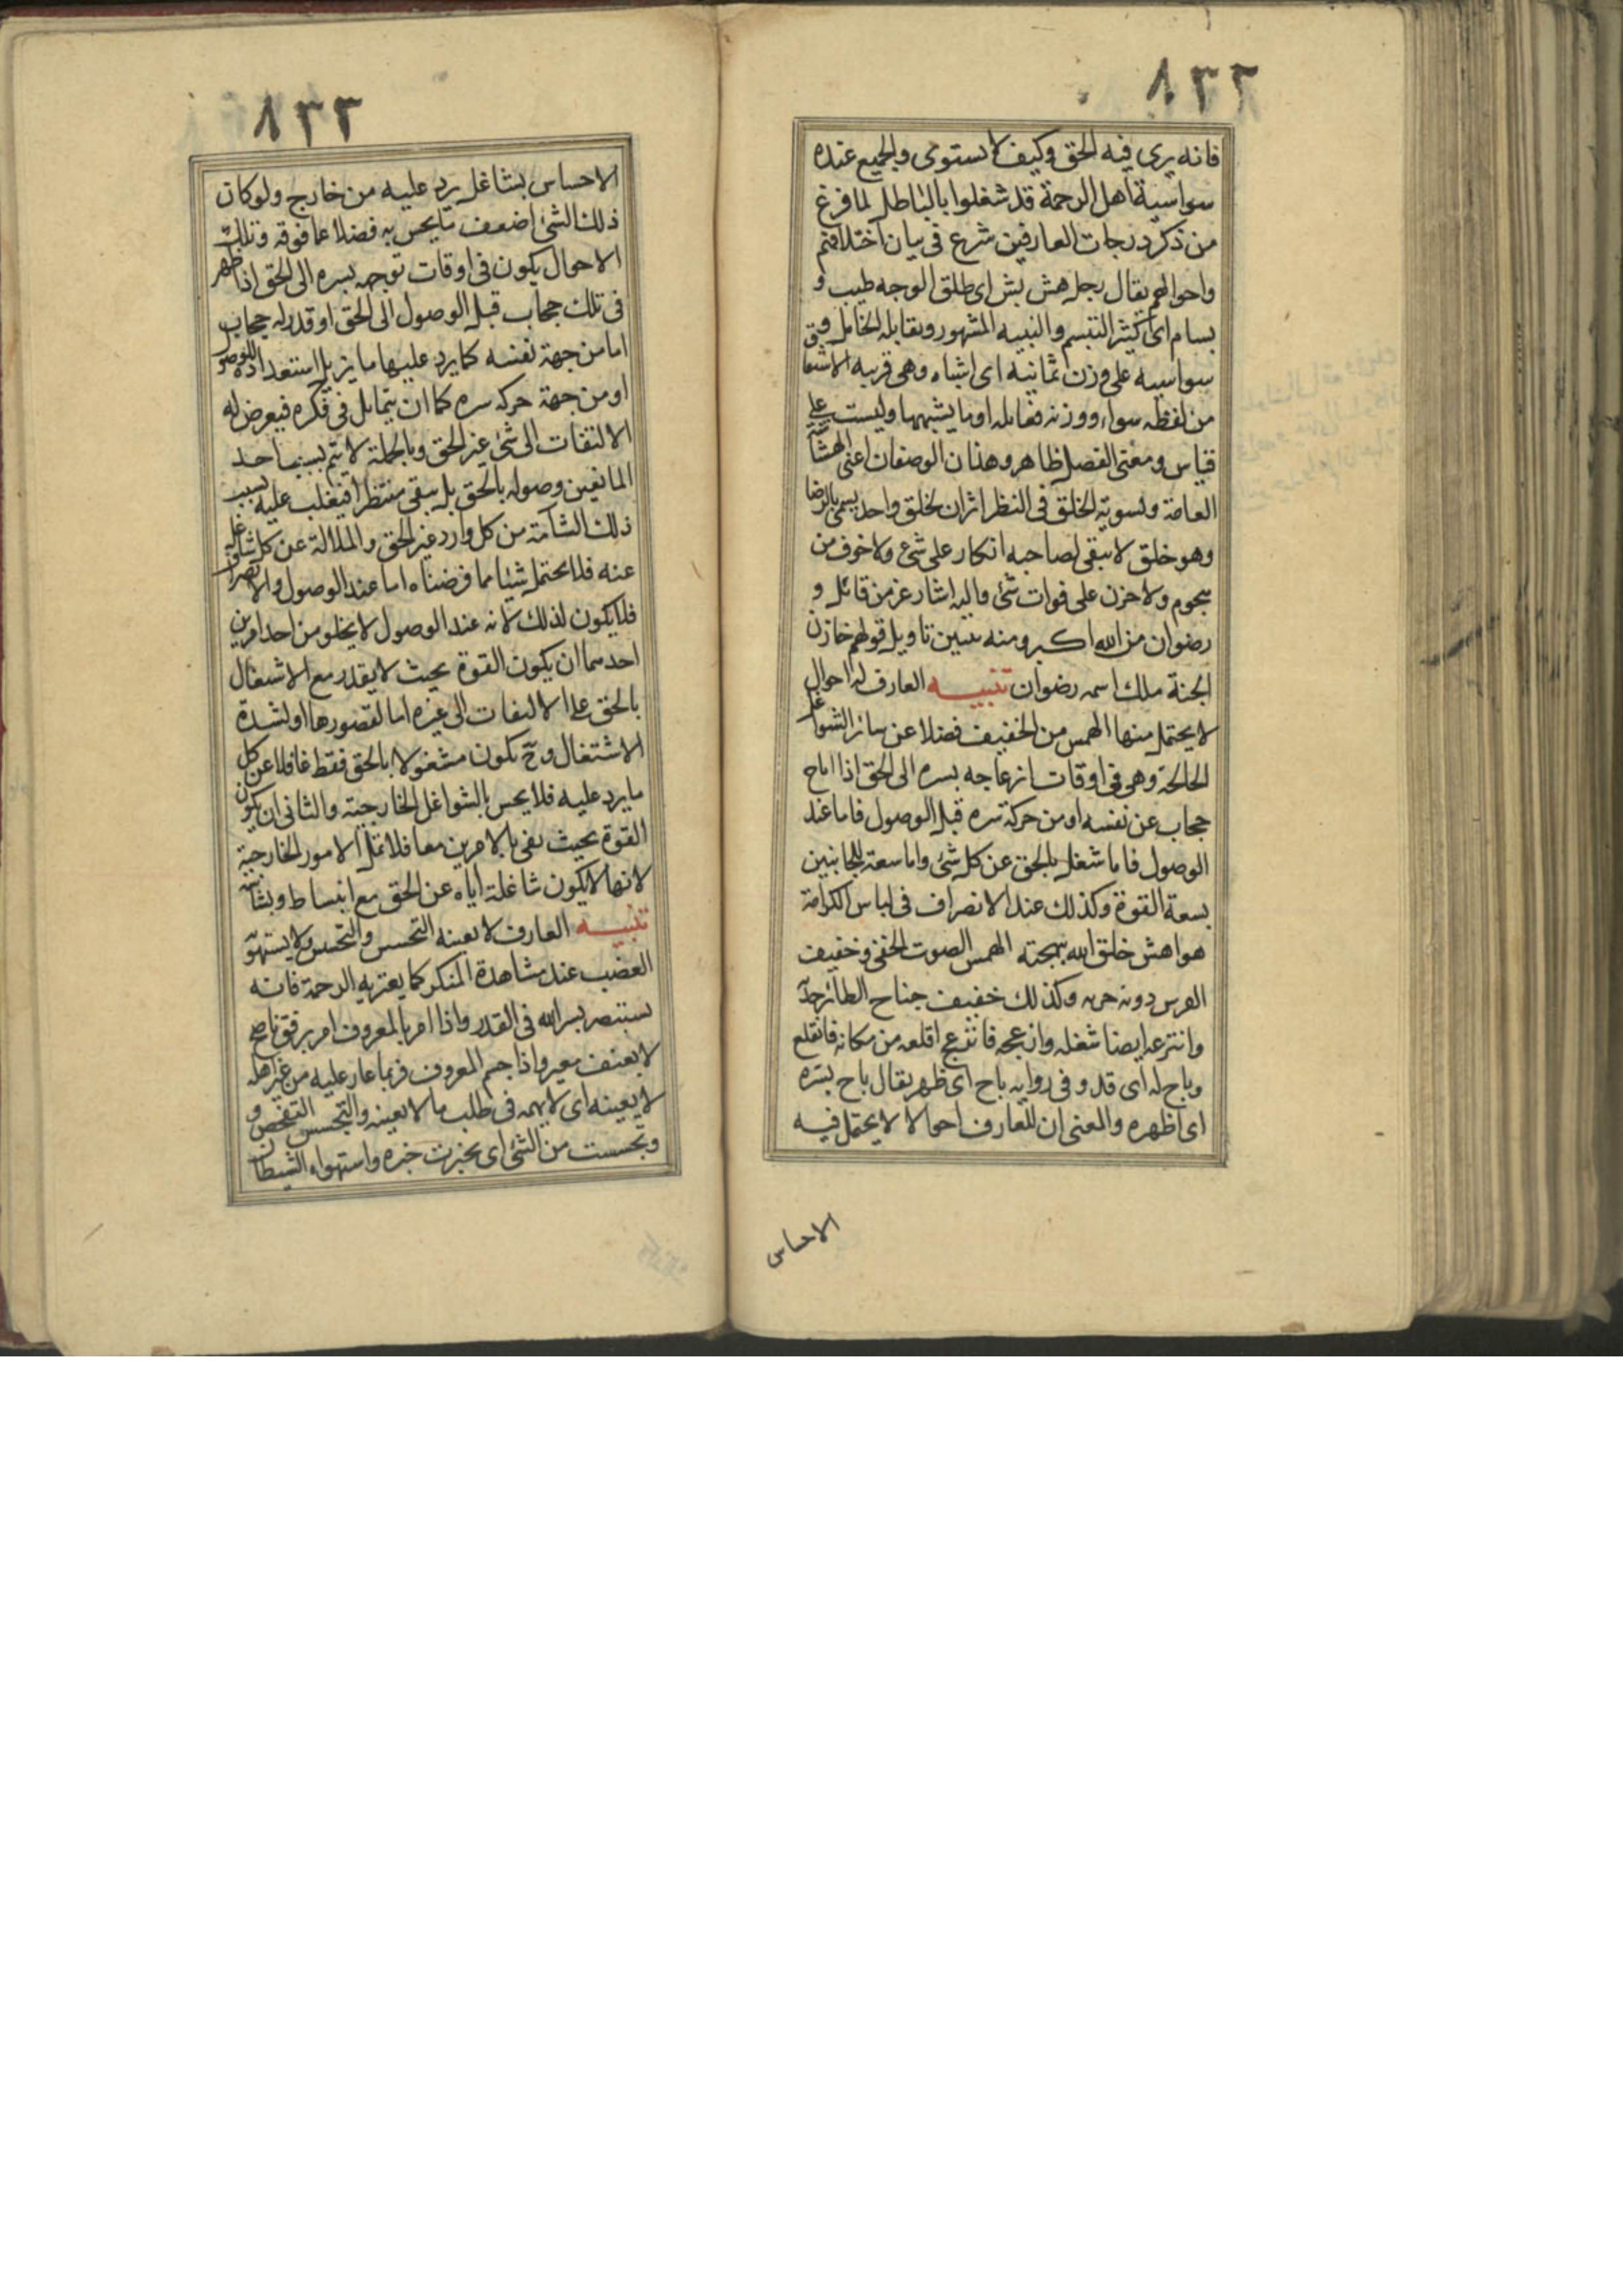 ٨٣٢
فانه يرى فيه الحق وكيف لا يستوى والجميع عنده
سواسية اهل الرحمة قد شغلوا بالباطل لما فرغ
من ذكر درجات العارفين شرع فى بيان اختلافهم
واحوالهم يقال رجل هش بش اى طلق الوجه طيب و
بسام اى كثير التبسم والنبيه المشهور ويقابله الخامل وق
سواسيه على وزن ثمانيه اى اشباه وهى قريبه الاشتقا
من لفظه سواء ووزنه فعافله او ما يشبهها وليست على
قياس ومعنى الفصل ظاهر وهذان الوصفان اعنى الهشا
العامة وتسوية الخلق فى النظر اثران لخلق واحد يسمى بالرضا
وهو خلق لا يبقى لصاحبه انكار على شئ ولا خوف من
هجوم ولا حزن على فوات شئ واليه اشار عز من قائل و
رضوان من الله اكبر ومنه تبين تاويل قولهم خازن
الجنة ملك اسمه رضوان تنبيه العارف له احوال
لا يحتمل منها الهمس من الخفيف فضلا عن سائر الشواغل
الخالجة وهى فى اوقات انزعاجه بسره الى الحق اذا اباح
حجاب عن نفسه او من حركة سره قبل الوصول فاما عند
الوصول فاما شغل بالحق عن كل شئ واما سعة للجانبين
بسعة القوة وكذلك عند الانصراف فى لباس الكرامة
هو اهش خلق الله ببهجته الهمس الصوت الخفى وخفيف
الفرس دونه جريه وكذلك خفيف جناح الطائر
وانتزعه ايضا شغله وانزعجه فانزعج اقلعه من مكانه فانقلع
وباح له اى قدر وفى روايه باح اى ظهر يقال باح بسره
اى اظهره والمعنى ان للعارف احوالا لا يحتمل فيه
الاحساس
٨٣٣
الاحساس بشاغل يرد عليه من خارج ولو كان
ذلك الشئ اضعف ما يحس به فضلا عما فوقه وتلك
الاحوال يكون فى اوقات توجهه بسره الى الحق اذا ظهر
فى تلك حجاب قبل الوصول الى الحق او قدر له حجاب
اما من جهة نفسه كما يرد عليها ما يزيل استعداده للوصو
او من جهة حركه سره كما ان يتمايل فى فكره فيعرض له
الالتفات الى شئ غير الحق وبالجملة لا يتم بسبب احد
المانعين وصوله بالحق بل يبقى منتظرا فيغلب عليه بسبب
ذلك السآمة من كل وارد غير الحق والملالة عن كل شاغل
عنه فلا يحتمل شيئا مما فرضناه اما عند الوصول والانصراف
فلا يكون لذلك لانه عند الوصول لا يخلو من احد امرين
احدهما ان يكون القوة بحيث لا يقدر مع الاشتغال
بالحق على الالتفات الى غيره اما لقصورها او لشدة
الاشتغال وح يكون مشغولا بالحق فقط غافلا عن كل
ما يرد عليه فلا يحس بالشواغل الخارجية والثانى ان يكون
القوة بحيث يفى بالامرين معا فلا تمل الامور الخارجية
لانها لا يكون شاغلة اياه عن الحق مع انبساط وبشا
تنبيه العارف لا يعنيه التجسس والتحسس ولا يستهو
الغضب عند مشاهدة المنكر كما يعتريه الرحمة فانه
يستبصر بسر الله فى القدر واذا امر بالمعروف امر برفق ناصح
لا بعنف معير واذا جسم المعروف فربما غار عليه من غير اهله
لا يعنيه اى لا يهمه فى طلب ما لا يعنيه والتجسس التفحص و
وتحسست من الشئ اى تخبرت خبره واستهواه الشيطان